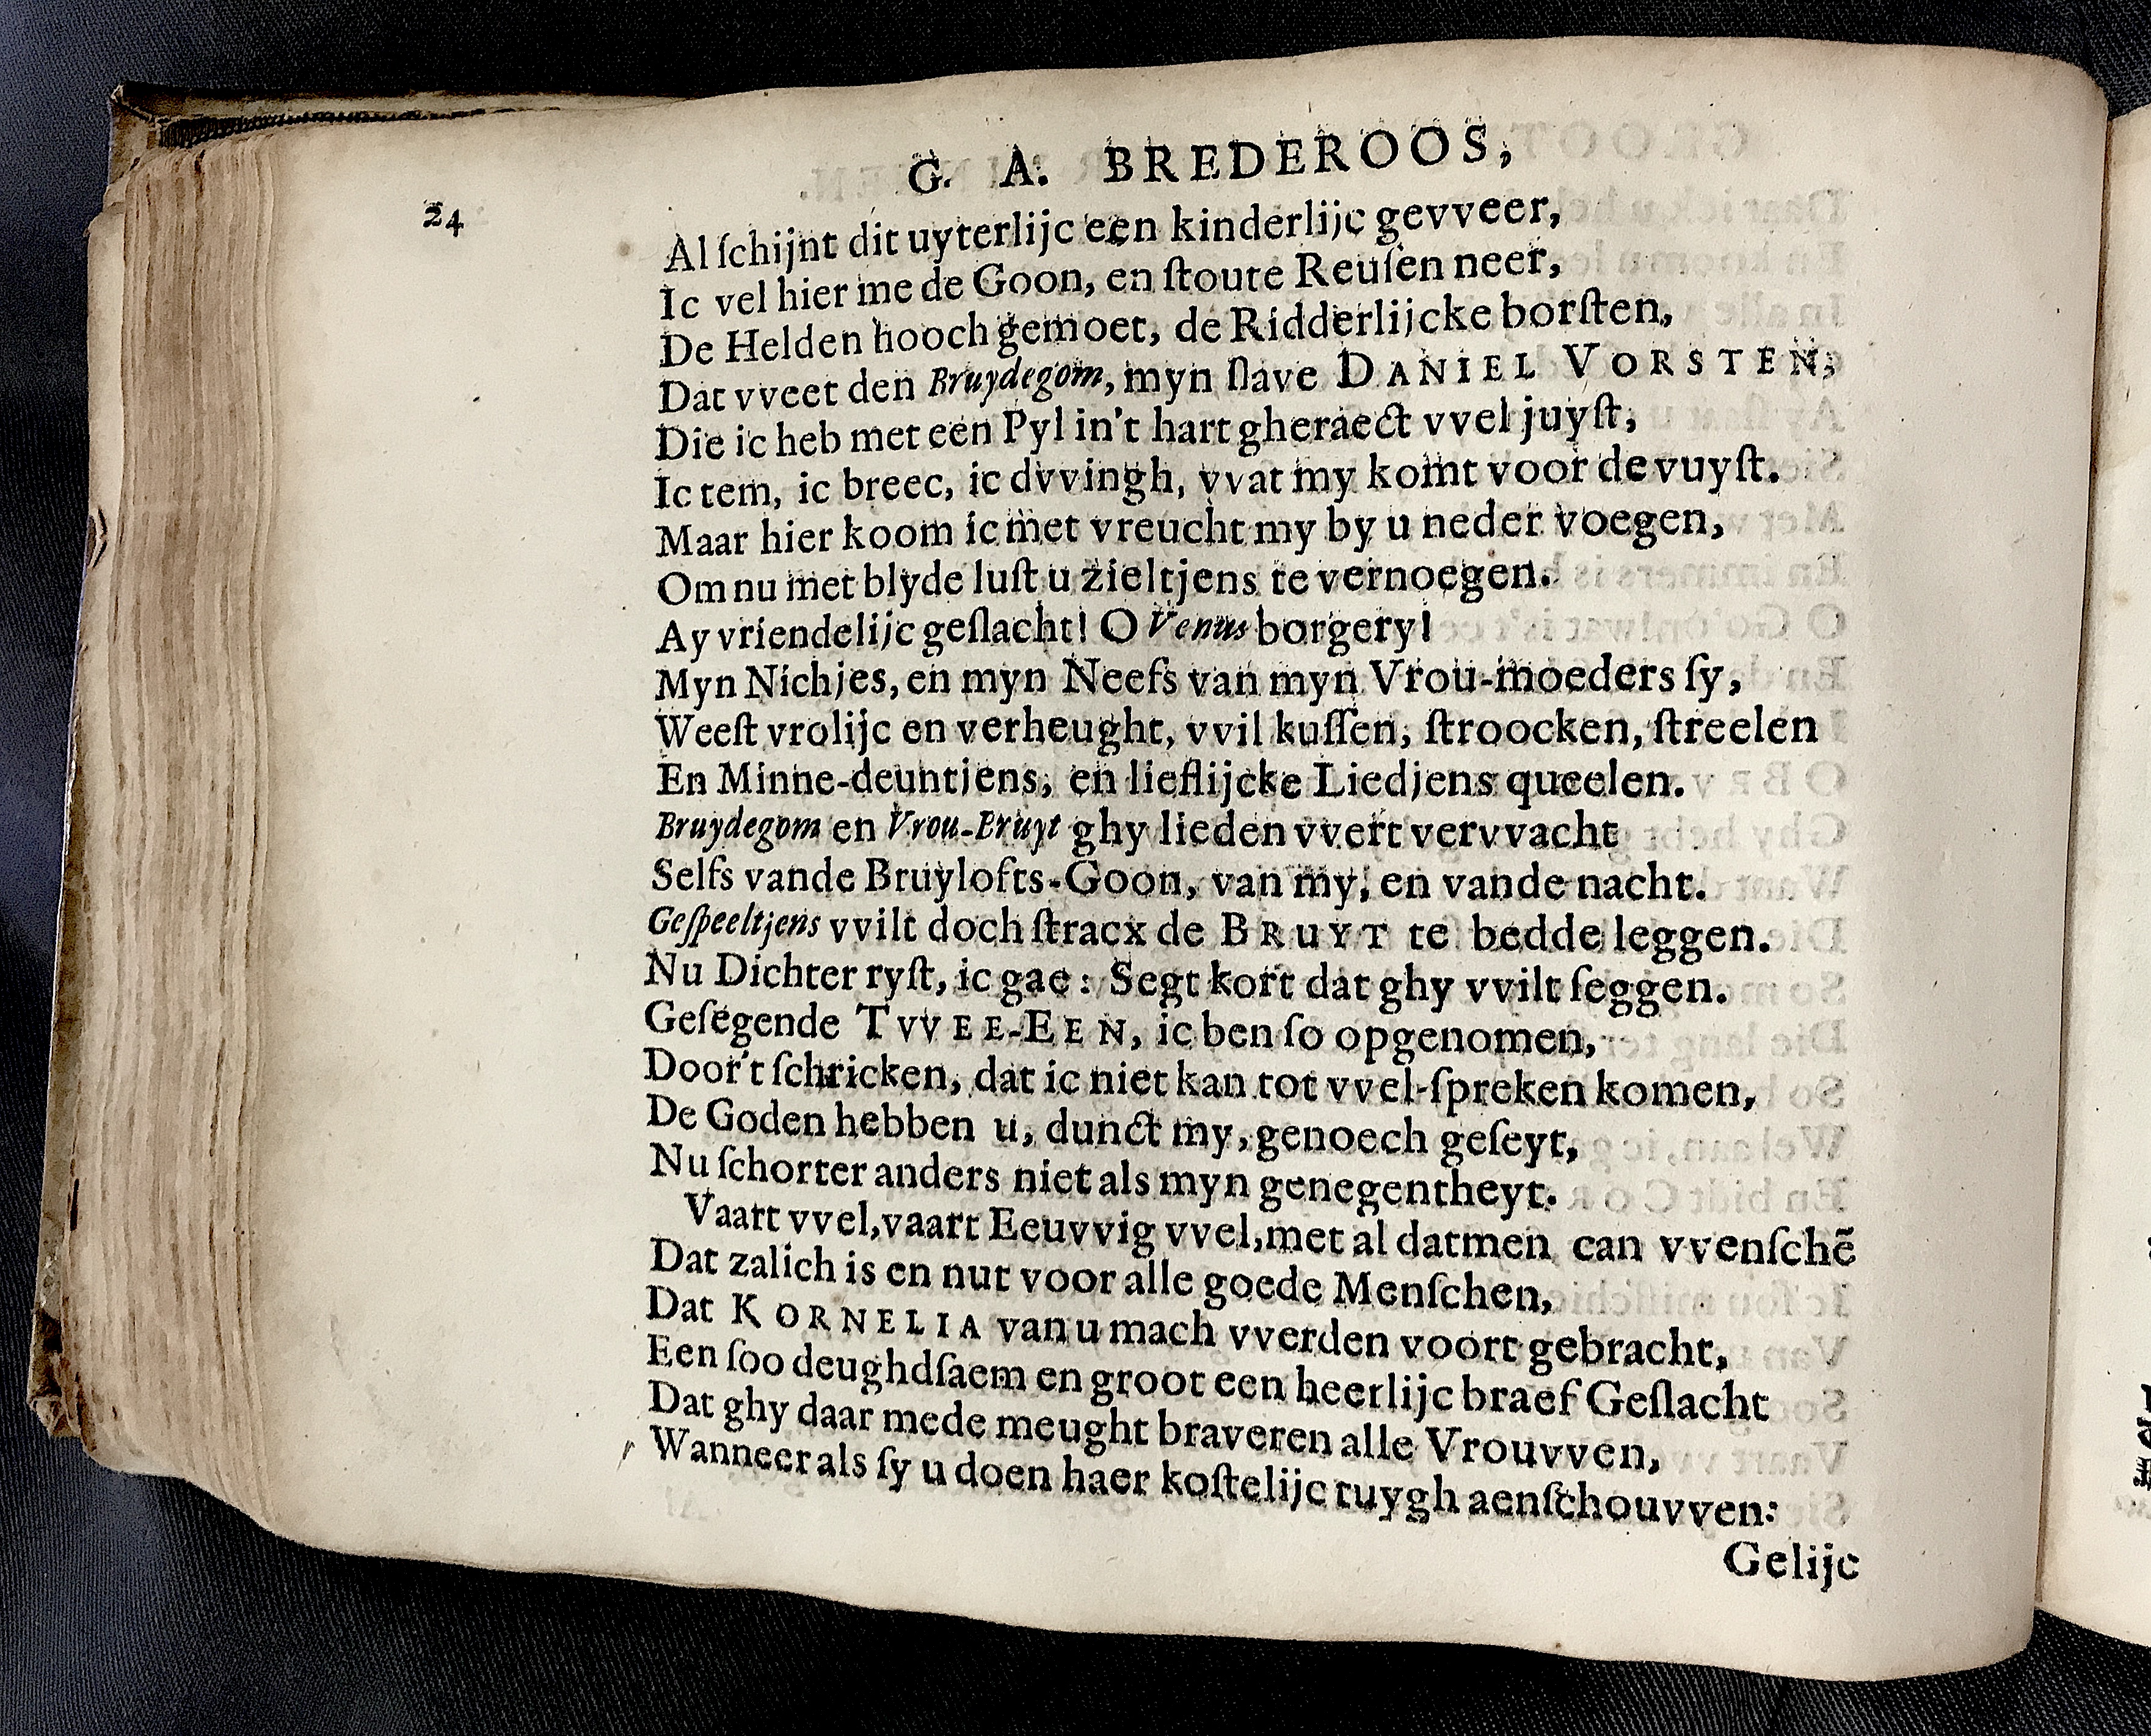 24
G. A. BREDEROOS,
Al ſchijnt dit uyterlijc een kinderlijc gevveer,
Ic vel hier me de Goon, en ſtoute Reuſen neer,
De Helden hooch gemoet, de Ridderlijcke borſten,
Dat vveet den Bruydegom, myn ſlave DANIEL VORSTEN;
Die ic heb met een Pyl in't hart gheraect vvel juyſt,
Ic tem, ic breec, ic dvvingh, vvat my komt voor de vuyſt.
Maar hier koom ic met vreucht my by u neder voegen,
Om nu met blyde luſt u zieltjens te vernoegen.
Ay vriendelijc geſlacht! O Venus borgery!
Myn Nichjes, en myn Neefs van myn Vrou-moeders ſy,
Weeſt vrolijc en verheught, vvil kuſſen, ſtroocken, ſtreelen
En Minne-deuntjens, en lieflijcke Liedjens queelen.
Bruydegom en Vrou-Bruyt ghy lieden vvert vervvacht
Selfs vande Bruylofts-Goon, van my, en vande nacht.
Geſpeeltjens vvilt doch ſtracx de BRUYT te bedde leggen.
Nu Dichter ryſt, ic gae: Segt kort dat ghy vvilt ſeggen.
Geſegende TVVEE-EEN, ic ben ſo opgenomen,
Door't ſchricken, dat ic niet kan tot vvel-ſpreken komen,
De Goden hebben u, dunct my, genoech geſeyt,
Nu ſchorter anders niet als myn genegentheyt.
Vaart vvel, vaart Eeuvvig vvel, met al datmen can vvenſchē
Dat zalich is en nut voor alle goede Menſchen,
Dat KORNELIA van u mach vverden voort gebracht,
Een ſoo deughdſaem en groot een heerlijc braef Geſlacht
Dat ghy daar mede meught braveren alle Vrouvven,
Wanneer als ſy u doen haer koſtelijc tuygh aenſchouvven:
Gelijc